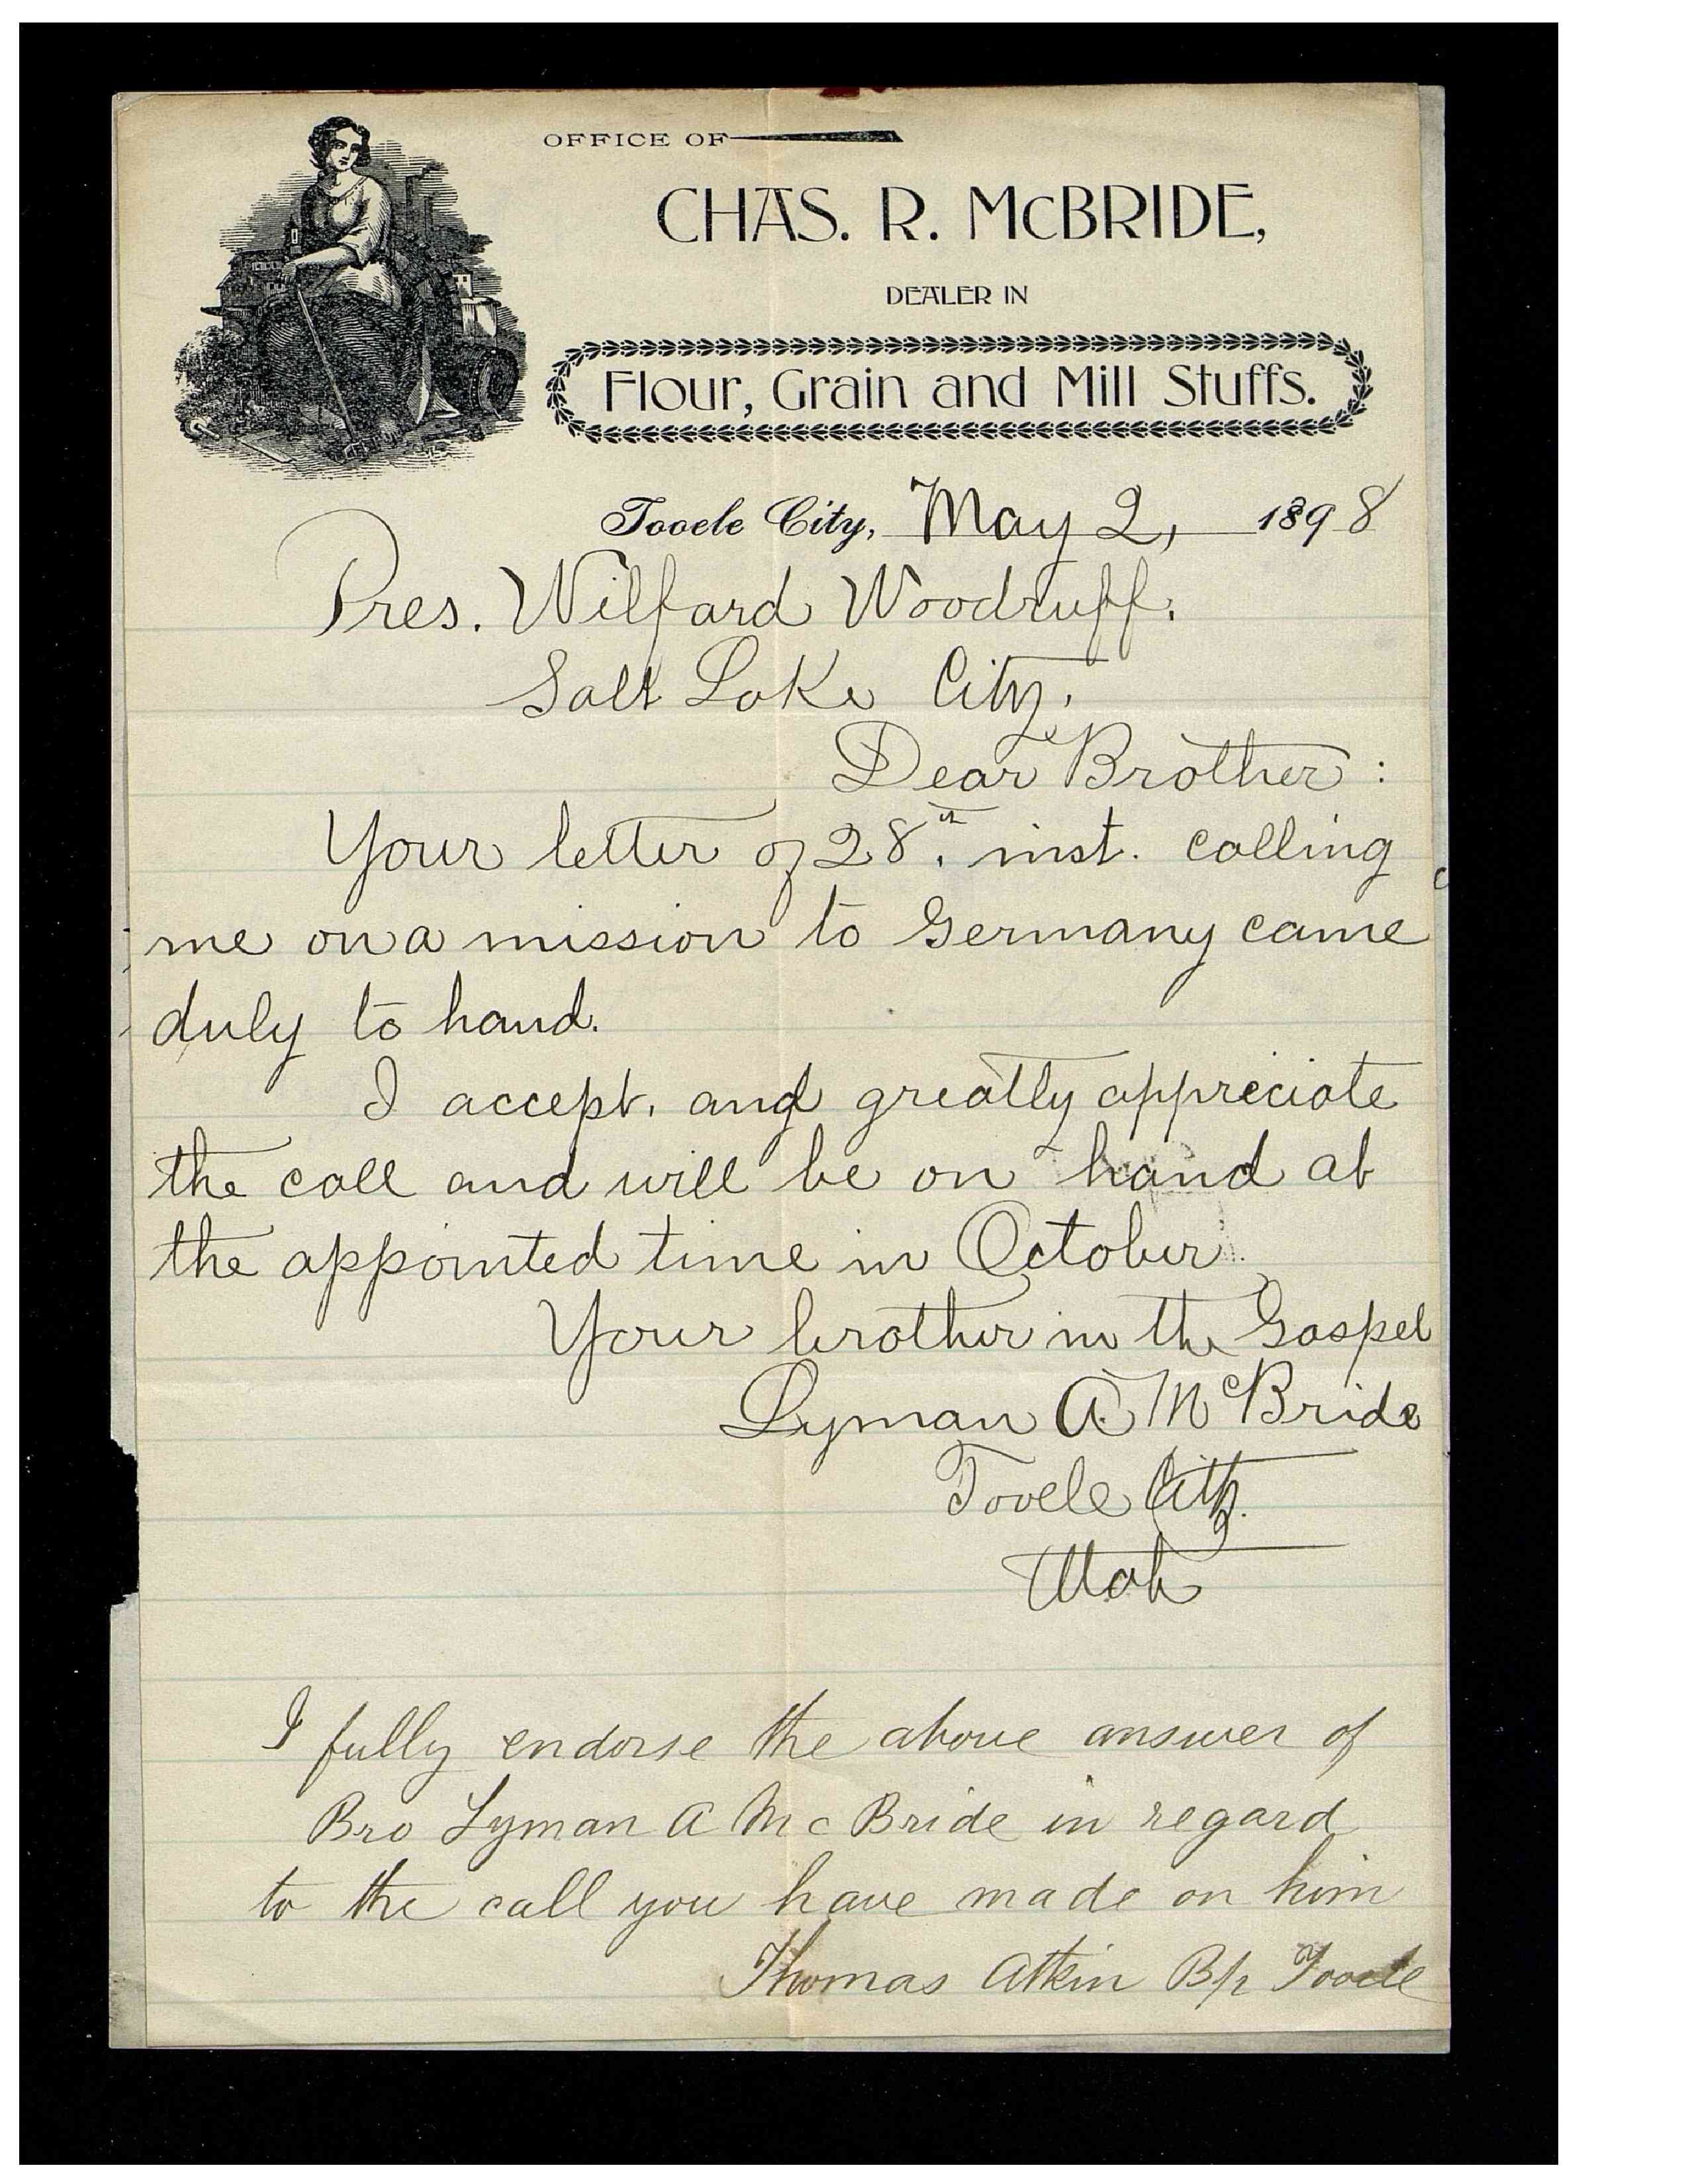 OFFICE OF
CHAS. R. McBRIDE,
DEALER IN
Flour, Grain and Mill Stuffs.
Tooele City, May 2, 1898
Pres. Wilfard Woodruff.
Salt Lake City.
Dear Brother:
Your letter of 28th. inst. calling
me on a mission to Germany came
duly to hand.
I accept. and greatly appreciate
the call and will be on hand at
the appointed time in October.
Your brother in the Gospel
Lyman A. McBride
Tooele City.
Utah
I fully endorse the above answer of
Bro Lyman A Mc Bride in regard
to the call you have made on him
Thomas Atkin Bp Tooele